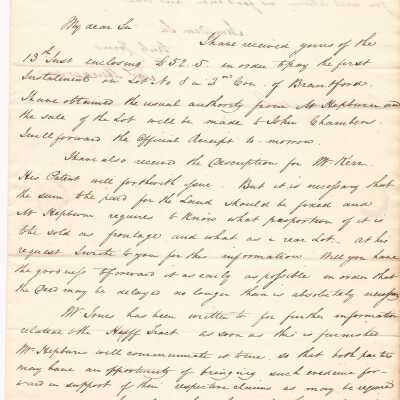 My dear Sir
I have received yours of the
13th Inst enclosing £52.5. in order to pay the first
Instalment on Lot No 8 in 3rd Con. of Brantford.
I have obtained the usual authority from Mr Hepburn and
the sale of the Lot will be made to John Chambers.
I will forward the Official Receipt to-morrow.
I have also received the Description for Mr Kerr.
His Patent will forthwith issue. But it is necessary that
the sum to be paid for the Land should be fixed and
Mr Hepburn requires to know what proportion of it is
to be sold as frontage and what as a rear Lot. At his
request I write to you for this information. Will you have
the goodness to forward it as early as possible in order that
the Deed may be delayed no longer than is absolutely necessary
Mr Jones has been written to for further information
relative to the Tract as soon as this is furnished
Mr Hepburn will communicate it to me. so that both parties
may have an opportunity of bringing such evidence for-
ward in support of their respective claims as may be required